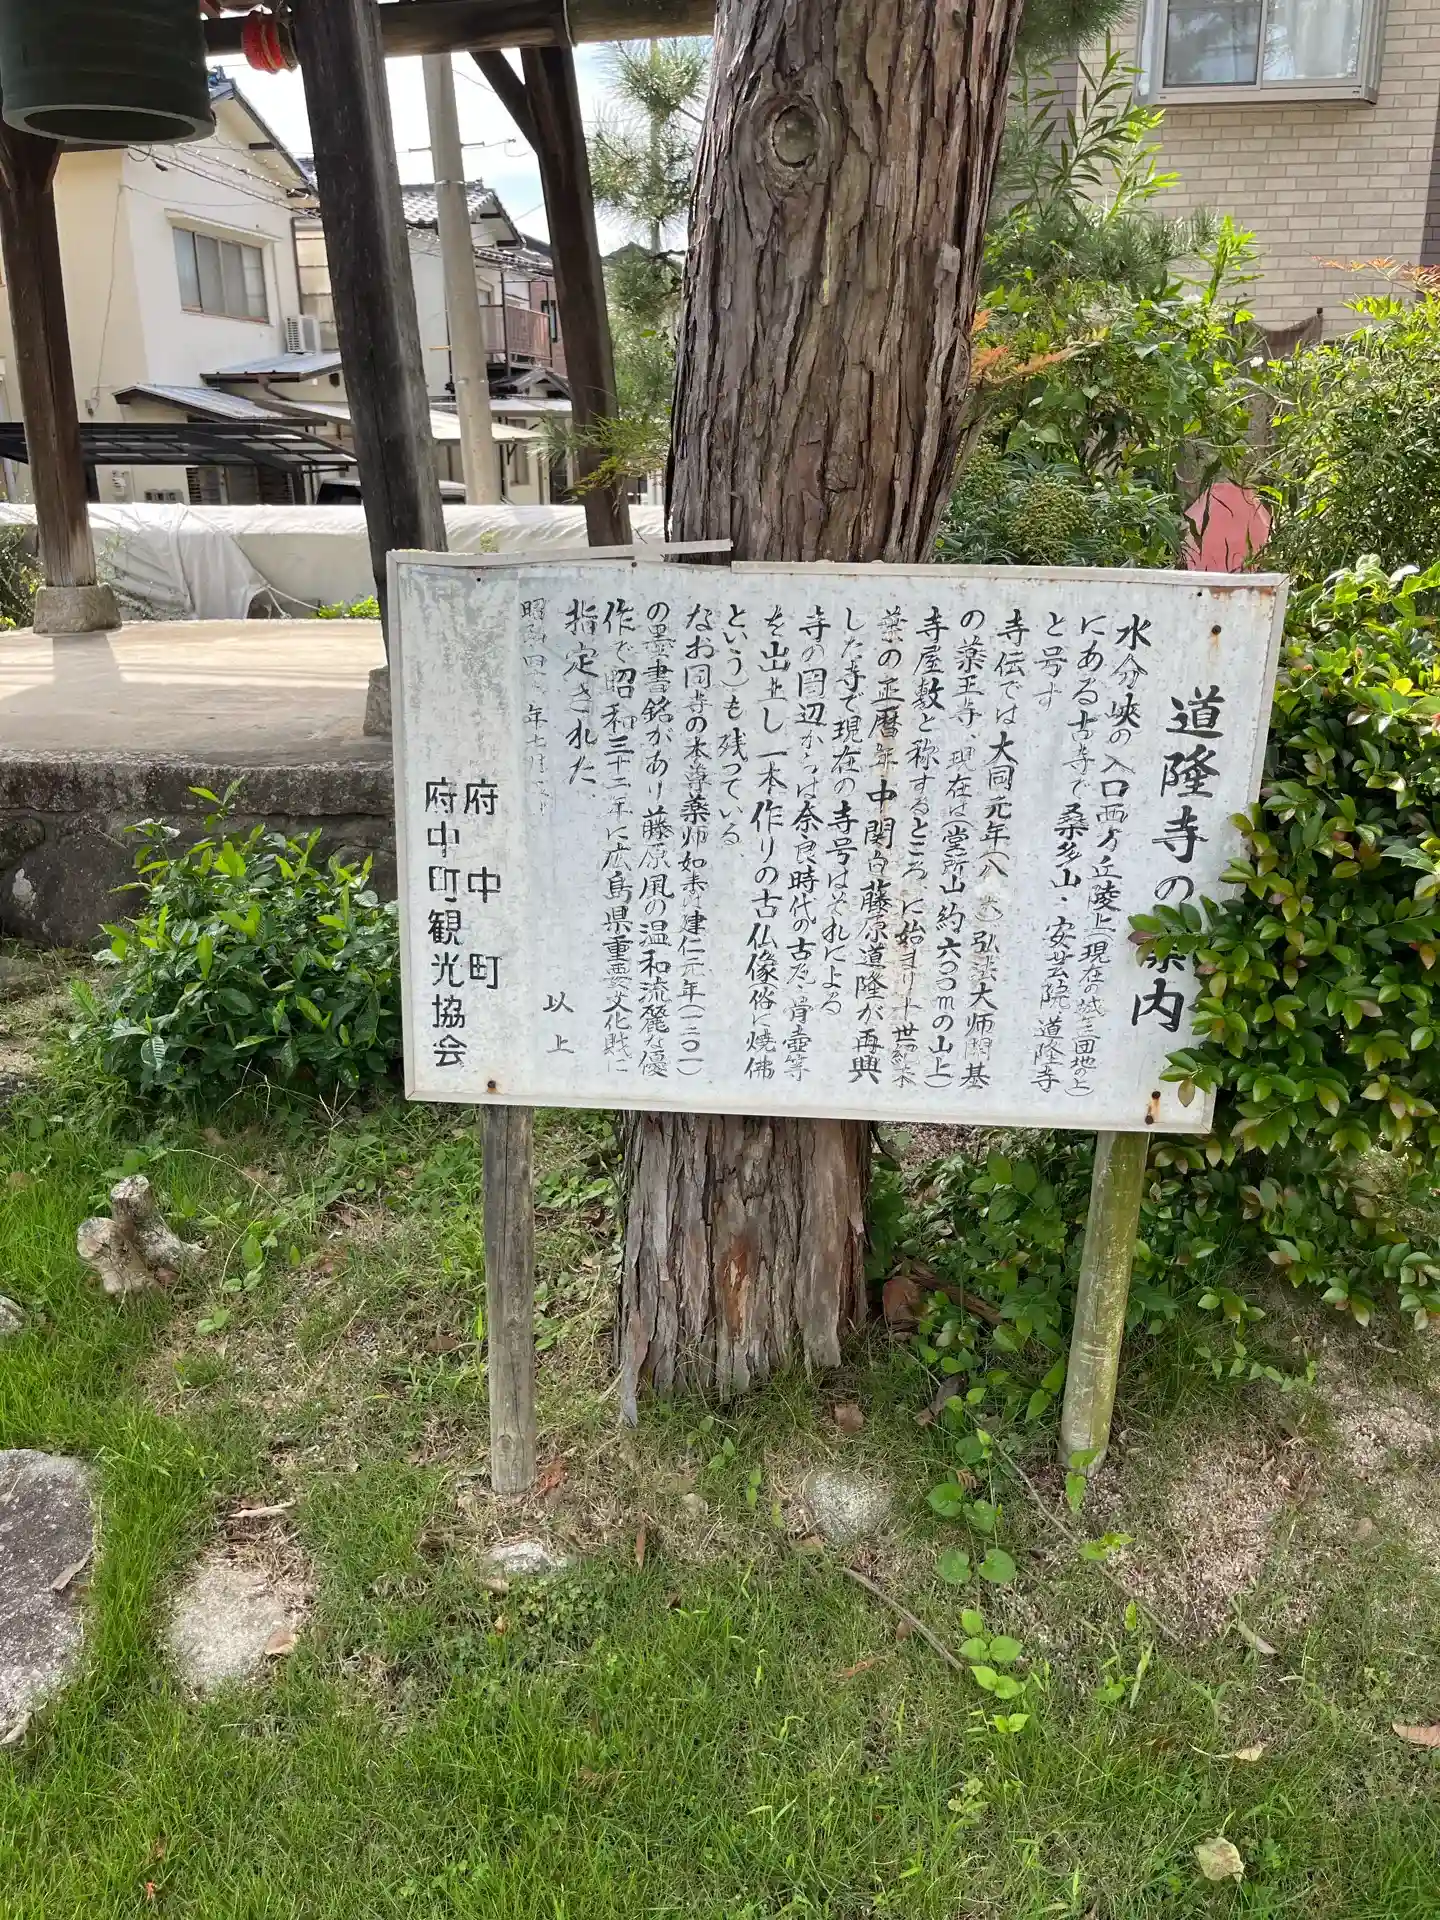 道隆寺の案内
水分峡の入口西方丘陵上(現在の城ヶ丘団地の上)
にある古寺で桑多山、安芸院、道隆寺
と号す
寺伝では大同元年(八〇六)弘法大師開基
の薬王寺、現在は(堂所山約六〇〇mの山上)
寺屋敷と称するところ、に始まり十世紀末
葉の正暦年中関白藤原道隆が再興
した寺で現在の寺号はそれによる
寺の周辺からは奈良時代の古瓦、骨壷等
を出土し一本作りの古仏像(俗に焼佛
という)も残っている
なお同寺の本尊薬師如来は建仁元年(一二〇一)
の墨書銘があり藤原風の温和流麗な優
作で昭和三十二年に広島県重要文化財に
指定された
以上
昭和四 年七月
府中町
府中町観光協会